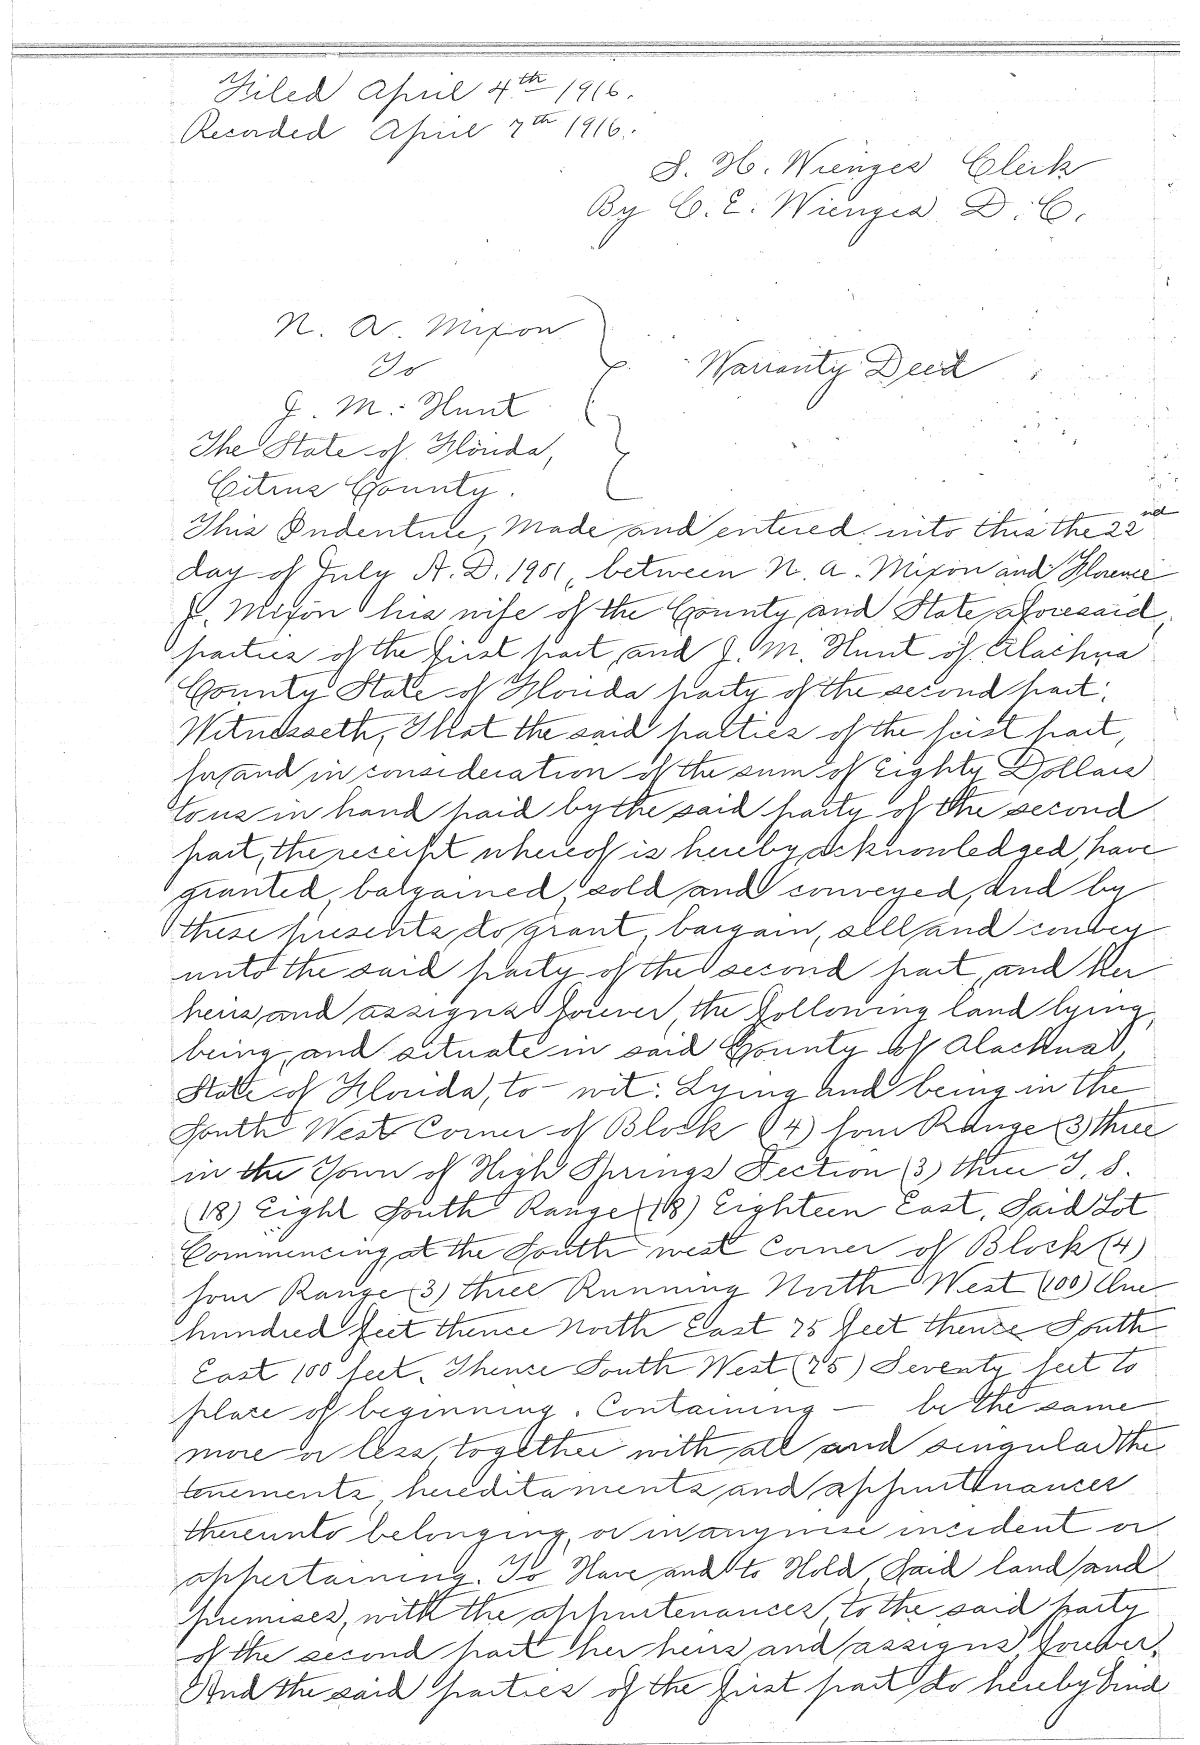 Filed April 4th 1916.
Recorded April 7th 1916.
S. H. Wienges Clerk
By C. E. Wienges D. C.
N. A. Mixon
To
Warranty Deed
J. M. Hunt
The State of Florida,
Citrus County.
This Indenture, Made and entered into this the 22nd
day of July A. D. 1901, between N. A. Mixon and Florence
J. Mixon his wife of the County and State aforesaid,
parties of the first part, and J. M. Hunt of Alachua
County State of Florida party of the second part:
Witnesseth, That the said parties of the first part,
for and in consideration of the sum of Eighty Dollars
to us in hand paid by the said party of the second
part, the receipt whereof is hereby acknowledged, have
granted, bargained, sold and conveyed, and by
these presents do grant, bargain, sell and convey
unto the said party of the second part, and her
heirs and assigns forever, the following land lying,
being, and situate in said County of Alachua,
State of Florida, to-wit: Lying and being in the
South West Corner of Block (4) four Range (3) three
in the Town of High Springs Section (3) three T. S.
(18) Eight South Range (18) Eighteen East. Said Lot
Commencing at the South west Corner of Block (4)
four Range (3) three Running North West (100) One
hundred feet thence North East 75 feet thence South
East 100 feet. Thence South West (75) Seventy feet to
place of beginning. Containing — be the same
more or less, together with all and singular the
tenements, hereditaments and appurtenances
thereunto belonging, or in anywise incident or
appertaining. To Have and to Hold Said land and
premises, with the appurtenances, to the said party
of the second part her heirs and assigns, forever.
And the said parties of the first part do hereby bind